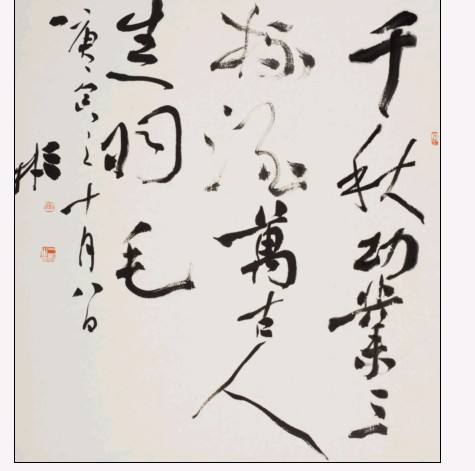 千秋功業三
杯酒萬古人
生一羽毛
庚寅之十月八日
彬